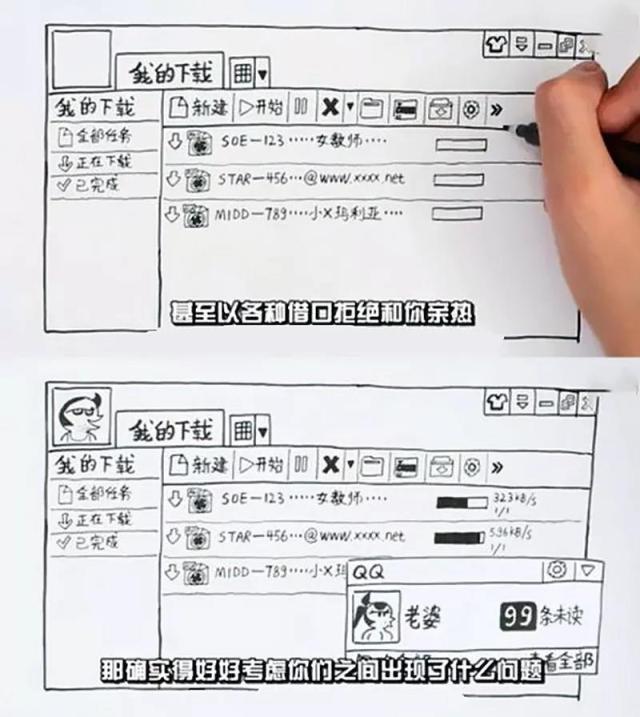 我的下载
我的下载
新建 开始
全部任务
正在下载
已完成
SOE-123·····女教师····
STAR-456···@www.xxxx.net
MIDD-789····小X玛利亚····
甚至以各种借口拒绝和你亲热
我的下载
我的下载
新建 开始
全部任务
正在下载
已完成
SOE-123·····女教师····
323kB/s
1/1
STAR-456···@www.xxxx.net
596kB/s
1/1
MIDD-789····小X玛
QQ
老婆 99条未读
查看全部
那确实得好好考虑你们之间出现了什么问题